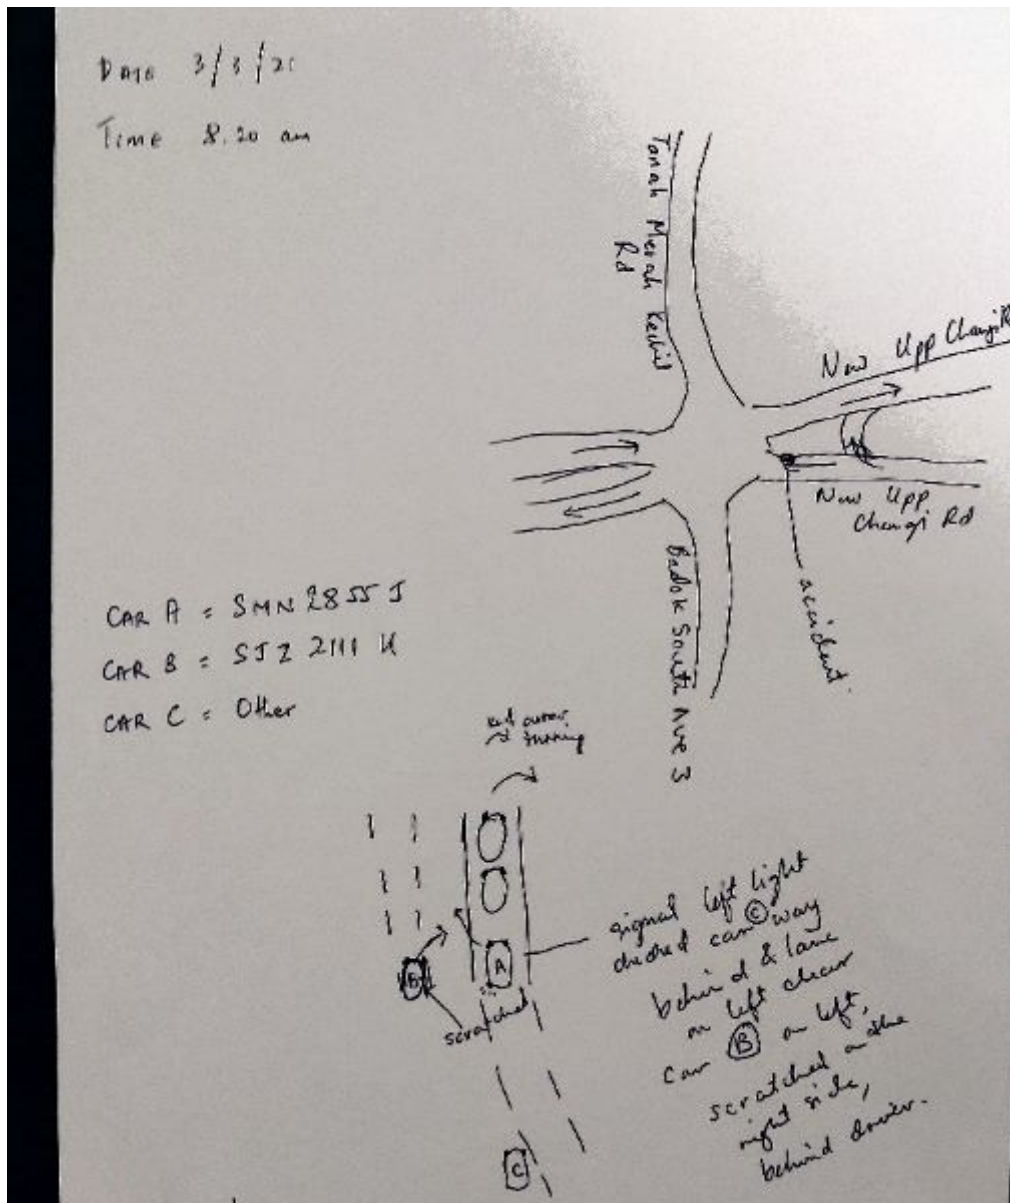 DATE 3/3/21
Time 8.20 am
Tanah Merah Kechil
Rd
New Upp Changi Rd
New Upp
Changi Rd
accident.
Bedok South Ave 3
CAR A = SMN 2855 J
CAR B = SJZ 2111 K
CAR C = Other
turning
A
B
scratched
C
signal left light
checked car C way
behind & lane
on left clear
car B on left,
scratched on the
right side,
behind driver.